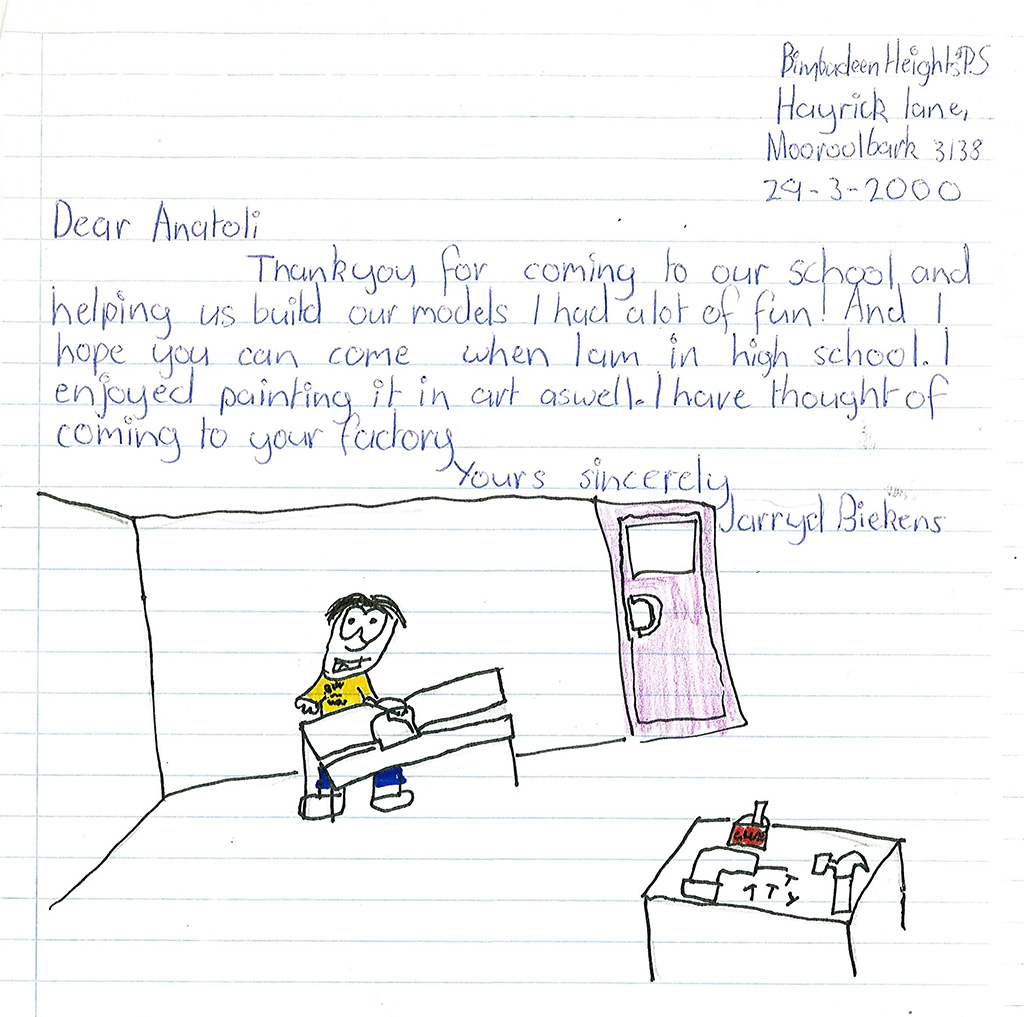 Bimbadeen Heights P.S
Hayrick lane,
Mooroolbark 3138
29-3-2000
Dear Anatoli
Thankyou, for coming to our school, and
helping us build our models I had a lot of fun! And I
hope you can come when I am in high school. I
enjoyed painting it in art aswell. I have thought of
coming to your factory
Yours sincerely
Jarryd Biekens